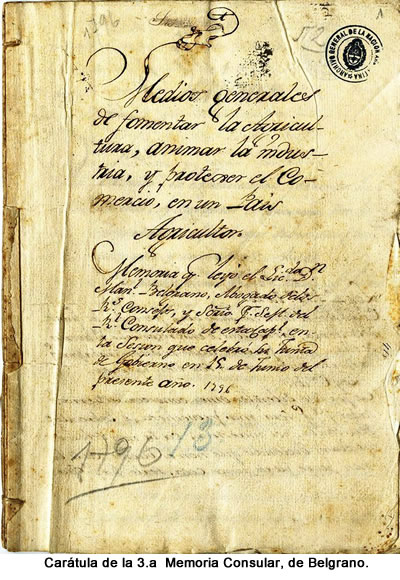 1796
52
1
ARCHIVO GENERAL DE LA NACION
Medios generales
de fomentar la Agricul-
tura, animar la indus-
tria, y proteger el Co-
mercio, en un Pais
Agricultor.
Memoria q. leyó el Lic.do Dn
Man.l Belgrano, Abogado de los
R.s Consejos, y Secret.o
R.l Consulado de esta Cap.l en
la Sesion que celebró su Junta
de Gobierno en de Junio del
presente año. 1796
1796
13
Carátula de la 3.a Memoria Consular, de Belgrano.